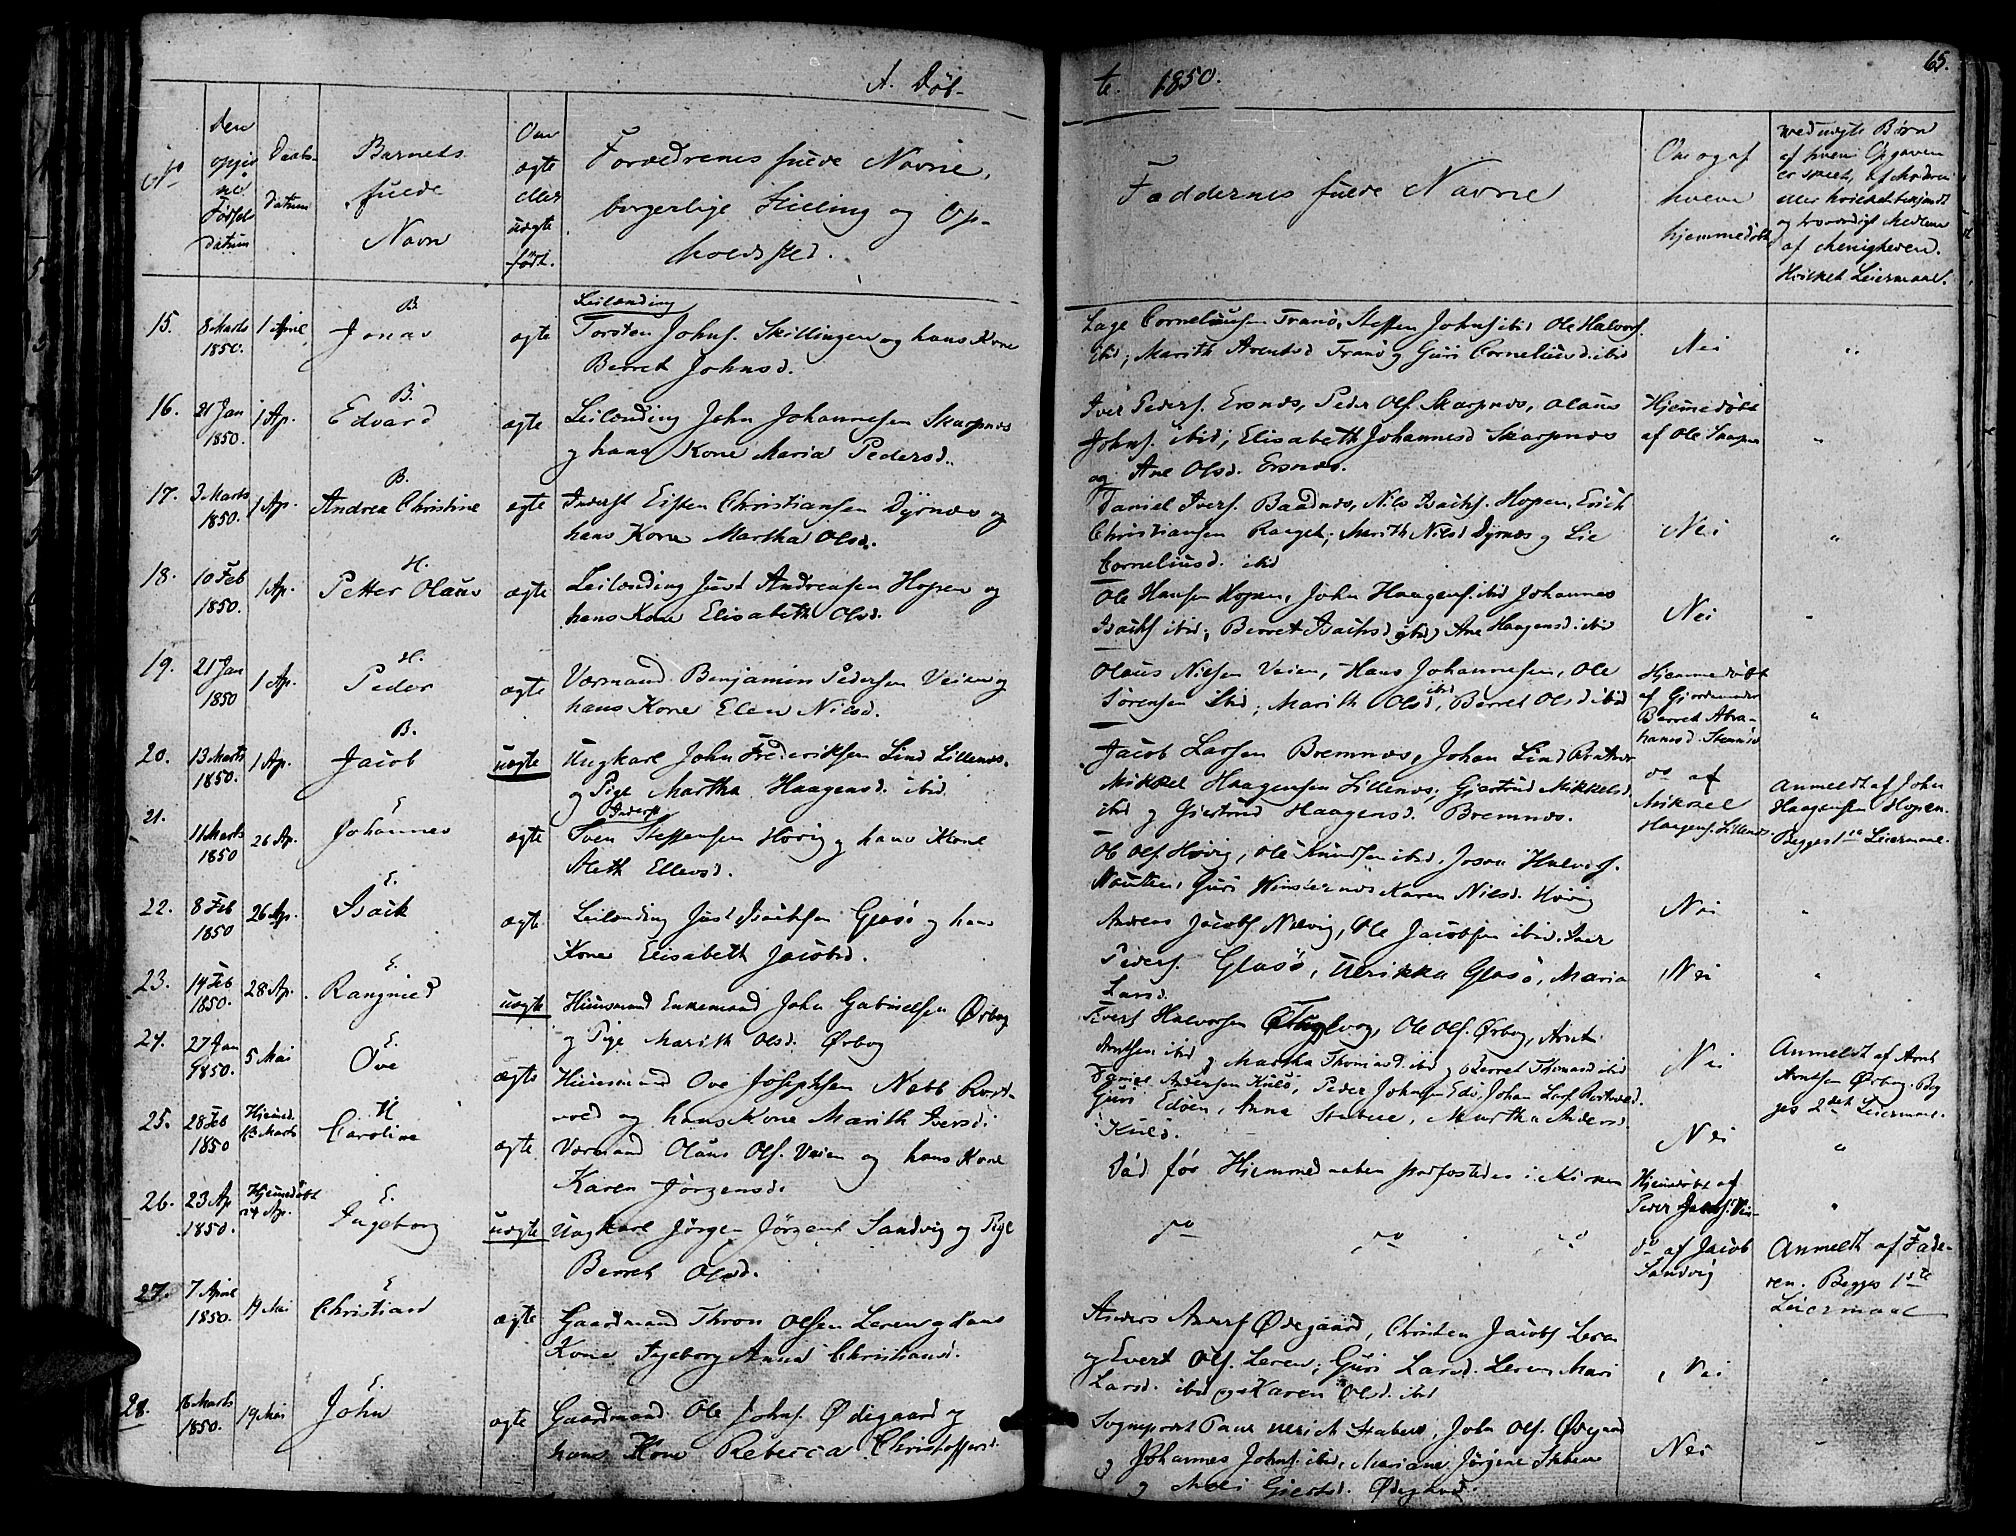 A. Døb-
te. 1850.
65.
No
Den
opgiv
ne
Fødsels
datum
Daabs-
datum
Barnets
fulde
Navn
Om
ægte
eller
uægte
født.
Forældrenes fulde Navne,
borgerlige Stilling og Op-
holdsted.
Faddernes fulde Navne
Om og af
hvem
hjemmedøbt
ved uægte Børn
af hvem Opgaven
er skeet, af Moderen
eller hvilket bekjendt
og troværdigt Medlem
af Menigheden.
Hvilket Leiermaal.
15.
8 Marts
1850.
1 April
B.
Jonas
ægte
Leilænding
Torsten Johns. Skillingen og hans Kone
Berret Johnsd.
Lage Corneliussen Tranø, Steffen Johns. ibid Ole Halvors.
ibid; Marith Arentsd Tranø og Guri Corneliusd. ibid
Nei
"
16.
21 Jan
1850.
1 Ap.
B.
Edvard
ægte
Leilænding John Johannesen Skarpnæs
og hans Kone Maria Pedersd.
Iver Peders. Ersnæs, Peder Ols. Skarpnæs, Olaus
Johns. ibid; Elisabeth Johannesd Skarpnæs
og Ane Olsd. Ersnæs.
Hjemmedøbt
af Ole
"
17.
3 Marts
1850.
1 Ap.
B.
Andrea Christine
ægte
Inderst Christiansen Dyrnæs og
hans Kone Martha Olsd.
Daniel Ivers. Baadnæs, Nils Isachs. Hopen, Erich
Christiansen Marith Nilsd Dyrnæs og
Corneliusd. ibid
Nei
"
18.
10 Feb
1850.
1 Ap.
H.
Petter Olaus
ægte
Leilænding Just Andreassen Hopen og
hans Kone Elisabeth Olsd.
Ole Hansen Hopen, John Haagens. ibid Johannes
Isachs ibid; Berret Isachsd ibid, Ane Haagensd. ibid
Nei
"
19.
21 Jan
1850
1 Ap.
H.
Peder
ægte
Værmand Benjamin Pedersen Veien og
hans Kone Elen Nilsd.
Olaus Nielsen Veien, Hans Johannesen, Ole
Sørensen ibid; Marith Olsd. ibid, Berret Olsd ibid
Hjemmedøbt
af Gjordemoder
Berret Abra-
hamsd.
"
20.
13 Marts
1850.
1 Ap.
B.
Jacob
uægte
Ungkarl John Frederiksen Lind Lillenæs.
og Pige Martha Haagensd. ibid.
Jacob Larsen Bremnæs, Johan Lind
Mikkel Haagensen Lillenæs, Giertrud Mikkelsd.
ibid og Giertrud Haagensd. Bremnæs.
do af
Mikkel
Haagens. Lillenæs.
Anmeldt af John
Haagensen Hopen.
Begges 1ste Leiermaal.
21.
11 Marts
1850
26 Ap.
E
Johannes
ægte
Inderst
Sven Steffensen Høvig og hans Kone
Aleth Ellevsd.
Ole Ols. Høvig, Ole Knudsen ibid, Halvors.
Guri Karen Nilsd. Høvig
Nei
"
22.
8 Feb
1850
26 Ap.
E.
Isack
ægte
Leilænding Just Isachsen Glasø og hans
Kone Elisabeth Jacobsd.
Anders Jacobs Nævig, Ole Jacobsen ibid, Iver
Peders. Glasø, Ulrikka Glasø, Maria
Larsd.
Nei
"
23.
14 Feb
1850.
28 Ap.
E.
Rangnild
uægte
Huusmand Enkemand John Gabrielsen Ørbog
og Pige Marith Olsd. Ørbog
Halvorsen Ole Ols. Ørbog, Arnt
Arntsen ibid og Martha Thomasd. ibid og Berret Thomasd ibid
Nei
Anmeldt af Arnt
Arntsen Ørbog. Beg
ges 2det Leiermaal.
24.
27 Jan
1850.
5 Mai
E
Ove
ægte
Huusmand Ove Josephsen Nebb
og hans Kone Marith Iversd.
Andersen Kulø, Peder Johnsen Edø, Johan Lars.
Guri Edøen, Anna Stabue, Martha Andersd.
Kulø.
Nei
"
25.
28 Feb
1850
Hjemmed.
13 Marts
H
Caroline
ægte
Værmand Olaus Ols. Veien og hans Kone
Karen Jørgensd.
Død før Hjemmedaaben stadfæstedes i Kirken
Hjemmedøbt af
Peder
"
26.
23 Ap
1850.
Hjemmedøbt
24 Ap.
E.
Ingeborg
uægte
Ungkarl Jørgen Jørgens Sandvig og Pige
Berret Olsd.
do do do
do af Jacob
Sandvig
Anmeldt af Fade-
ren. Begges 1ste
Leiermaal
27.
7 April
1850.
19 Mai
E
Christian
ægte
Gaardmand Thron Olsen Leren og hans
Kone Ingeborg Anna Christiansd.
Anders Anders Ødegaard, Christen Jacobs Leren
og Evert Ols. Leren; Guri Larsd. Leren, Mari
Larsd. ibid og Karen Olsd. ibid
Nei
"
28.
16 Marts
1850.
19 Mai
E.
John
ægte
Gaardmand Ole Johns. Ødegaard og
hans Kone Rebecca Christoffersd.
Sogneprest Paul Ulrich Stabue, John Ols. Ødegaard
og Johannes Johns. ibid, Mariane Jørgine Stabue
og Gjertsd. Ødegaard.
Nei
"